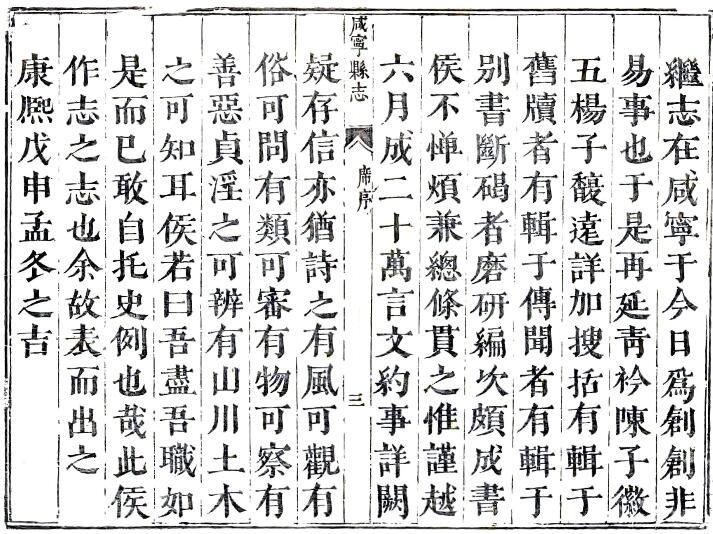 繼志在咸寧于今日爲創創非
易事也于是再延靑衿陳子徽
五楊子馥遠詳加搜括有輯于
舊牘者有輯于傳聞者有輯于
別書斷碣者磨研編次頗成書
侯不惮煩兼總條貫之惟謹越
六月成二十萬言文約事詳闕
咸寧縣志
席序
三
疑存信亦猶詩之有風可觀有
俗可問有類可審有物可察有
善惡貞淫之可辨有山川土木
之可知耳侯若曰吾盡吾職如
是而已敢自托史例也哉此侯
作志之志也余故表而出之
康熈戊申孟冬之吉